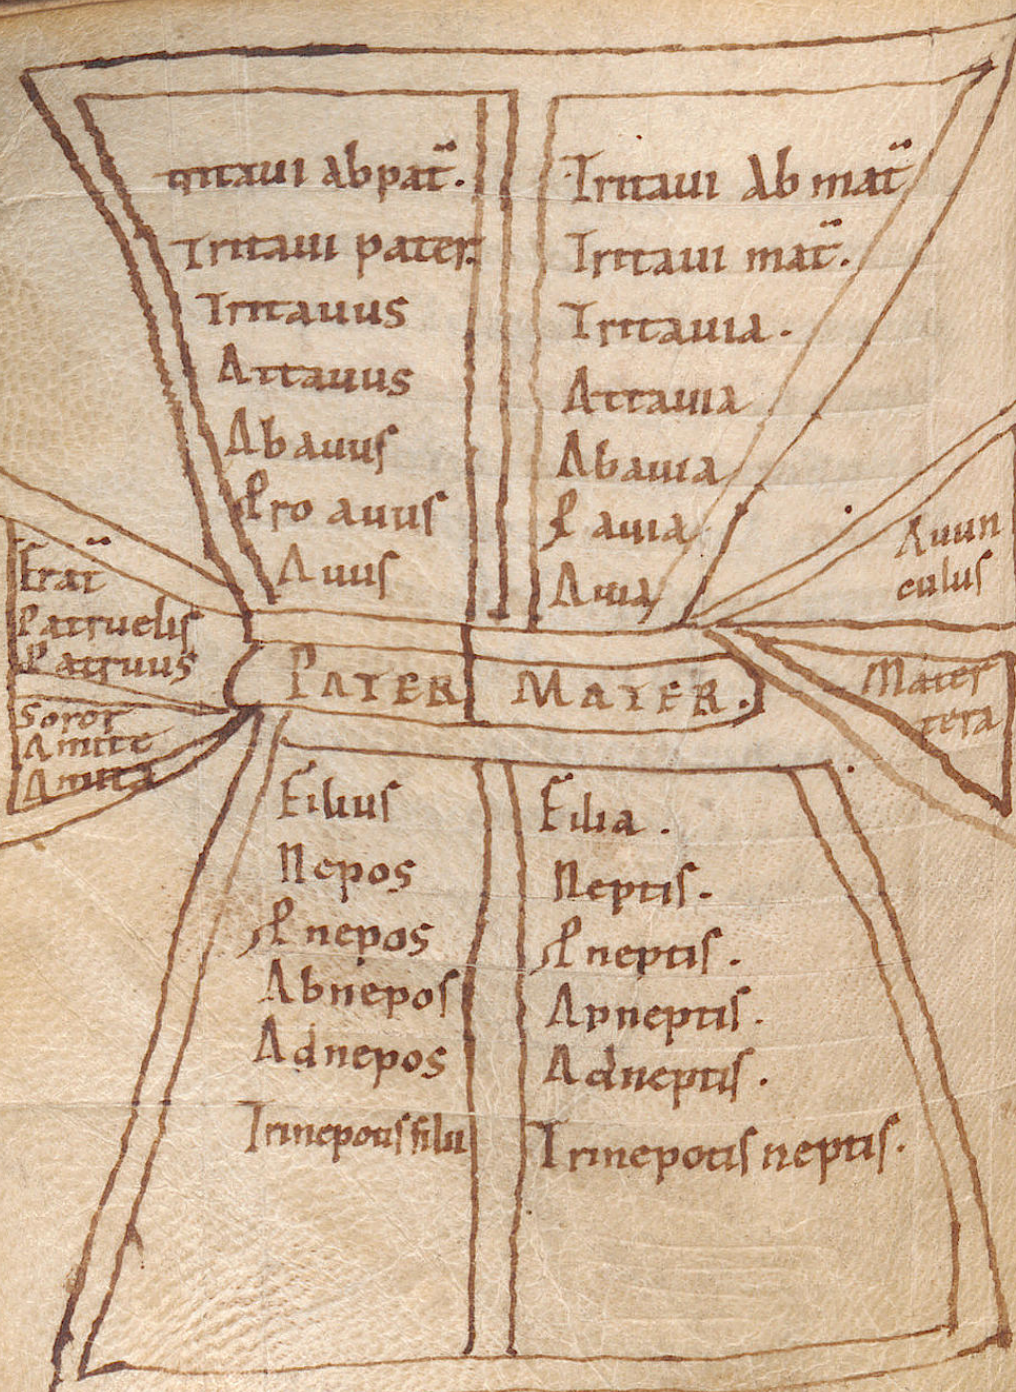 tritaui abpat̄.
Tritaui pater.
Tritauus
Attauus
Abauus
Pro auus
Auus
Tritaui Ab mat̄
Tritaui mat̄.
Tritauia.
Attauia
Abauia
ꝓauia
Auia
Frat̄
Patruelis
Patruus
Soror
Amite
Amita
Auun
culus
Mater
tera
PATER
MATER.
Filius
Nepos
ꝓnepos
Abnepos
Adnepos
Trinepotis filii
Filia.
Neptis.
ꝓneptis.
Abneptis.
Adneptis.
Trinepotis neptis.